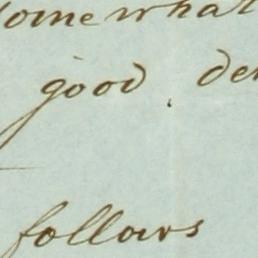 somewhat
good. de
follows